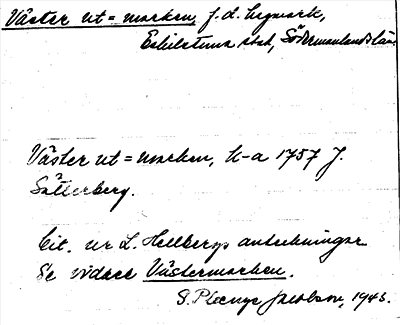 Väster ut=marken, f.d. utmark,
Eskilstuna stad, Södermanlands län.
Väster ut=marken, k-a 1757 J.
Sätterberg.
Cit. ur L. Hellbergs anteckningar
Se vidare Västermarken.
S. Jacobson, 1946.